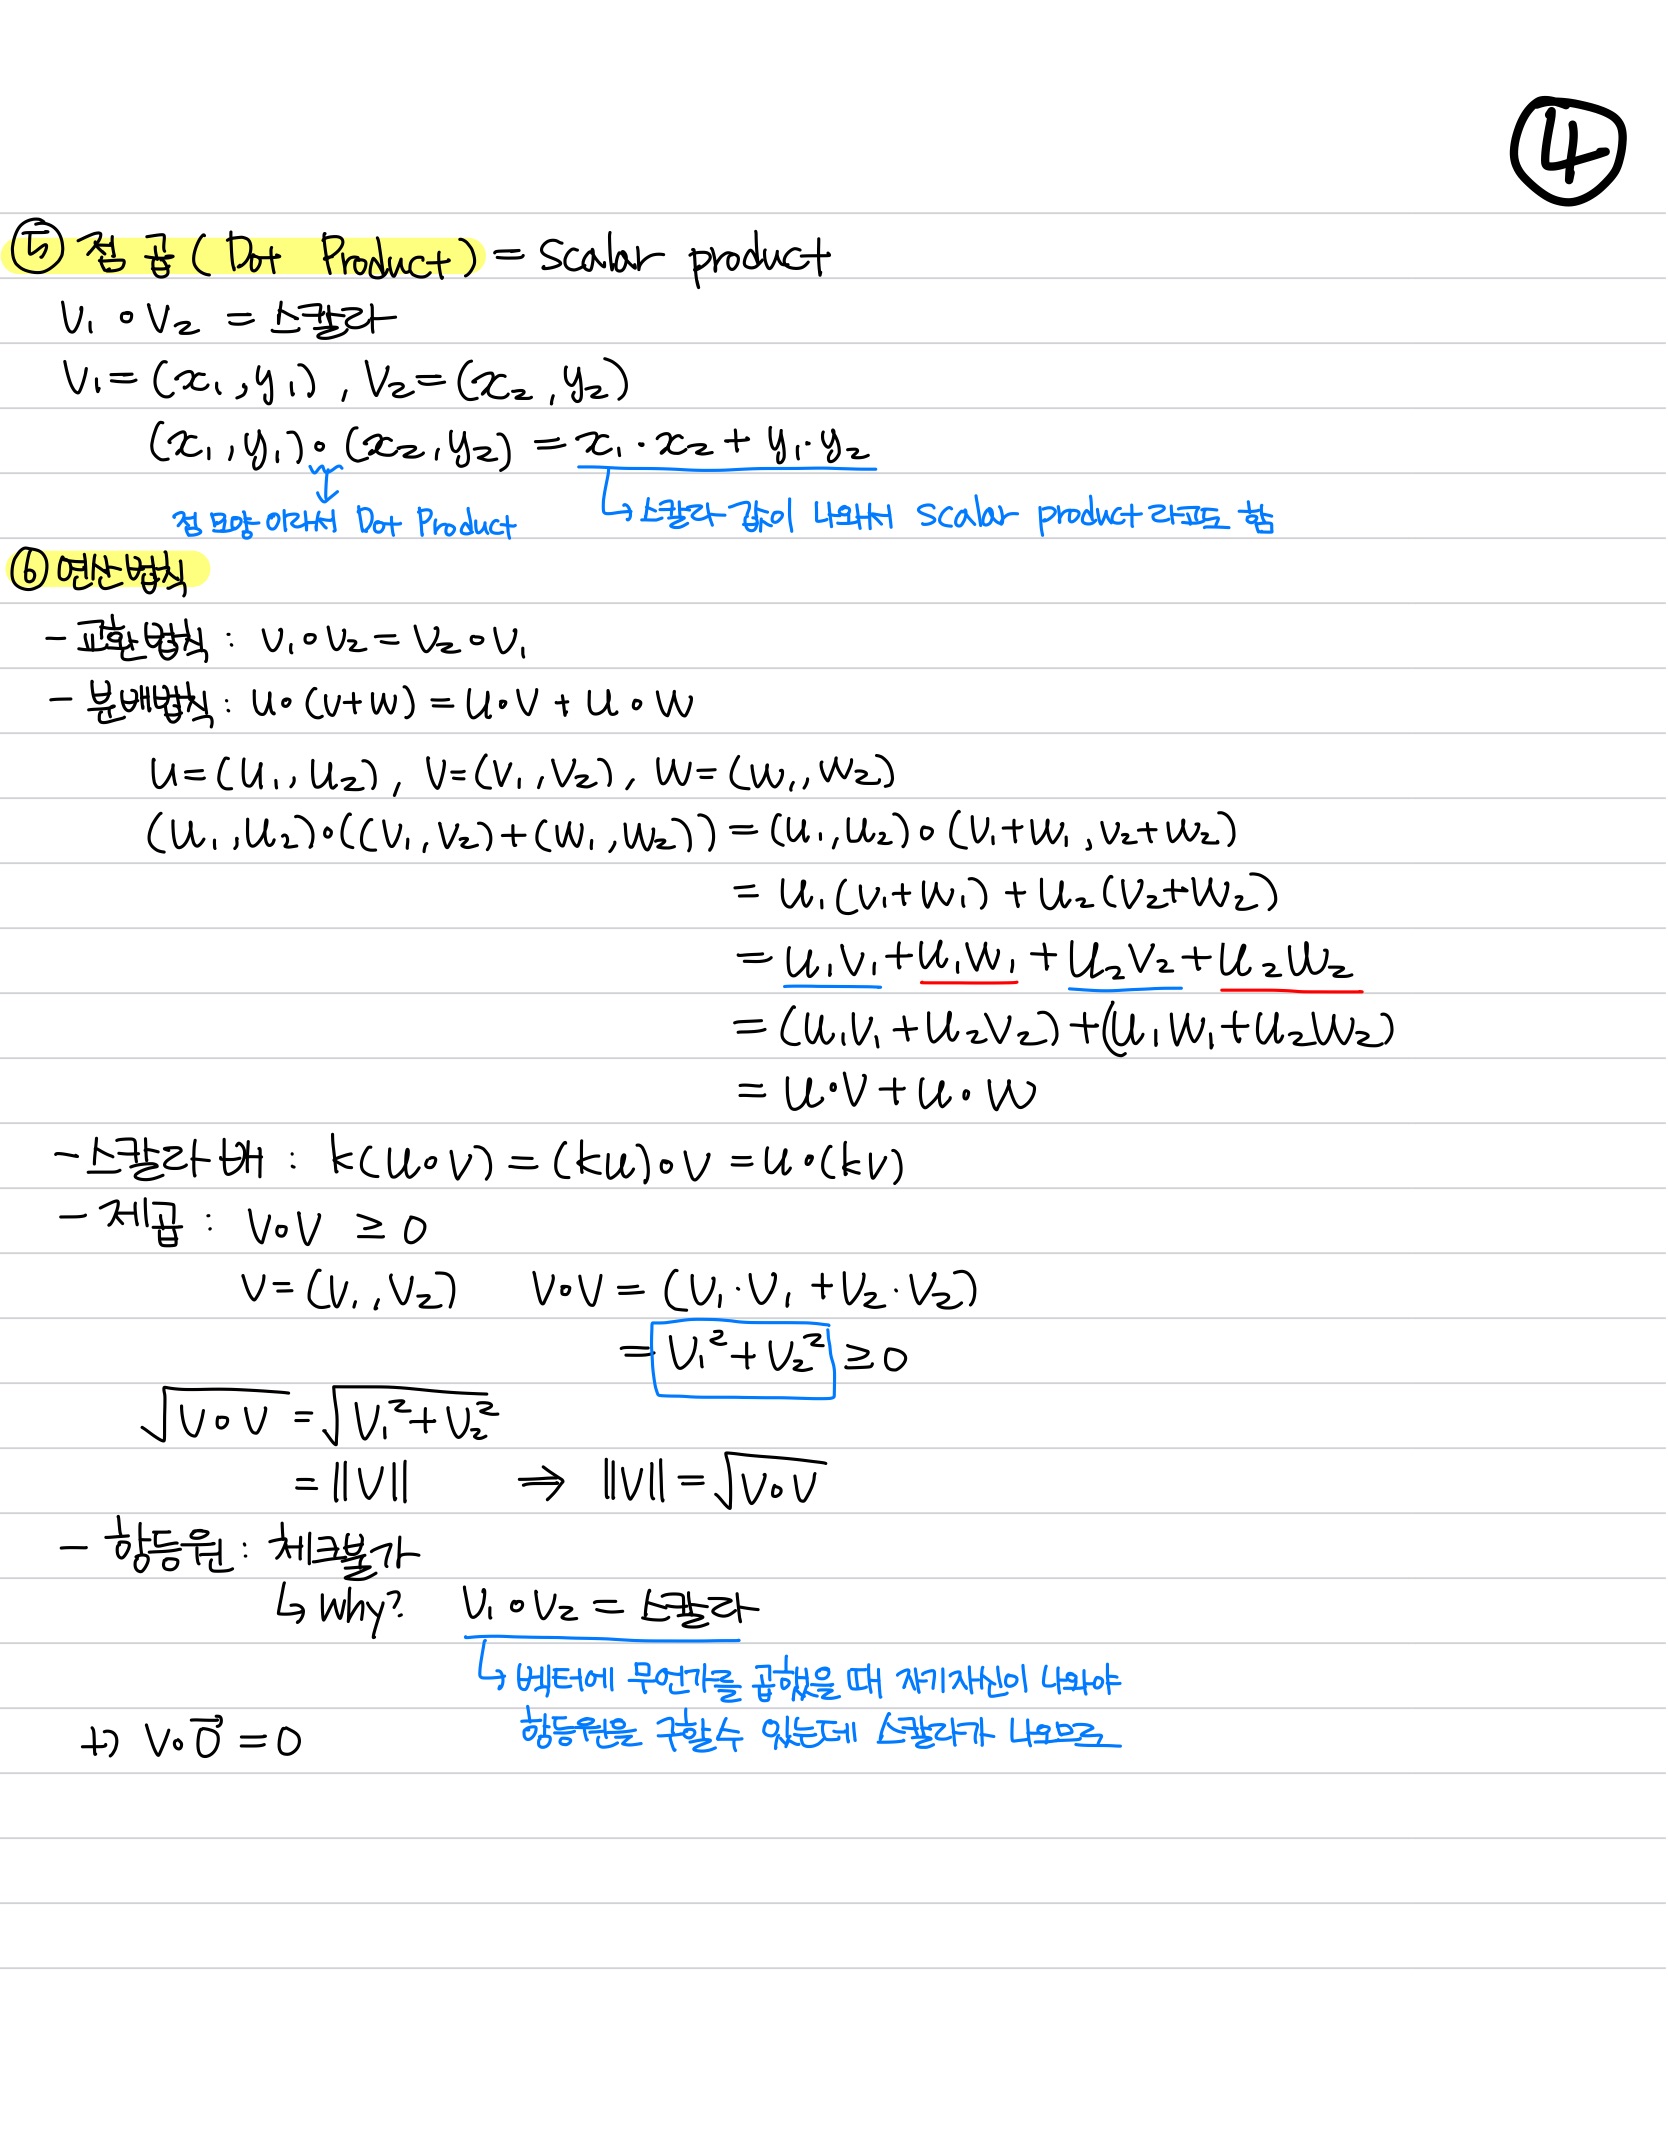 ④
⑤ 점 곱 (Dot Product) = Scalar product
V₁ ∘ V₂ = 스칼라
V₁ = (x₁, y₁), V₂ = (x₂, y₂)
(x₁, y₁) ∘ (x₂, y₂) = x₁·x₂ + y₁·y₂
점 모양 이라서 Dot Product
↳ 스칼라 값이 나와서 Scalar product 라고도 함
⑥ 연산법칙
- 교환법칙 : V₁∘V₂ = V₂∘V₁
- 분배법칙 : U∘(V+W) = U∘V + U∘W
U=(U₁, U₂), V=(V₁, V₂), W=(W₁, W₂)
(U₁, U₂)∘((V₁, V₂)+(W₁, W₂)) = (U₁, U₂)∘(V₁+W₁, V₂+W₂)
= U₁(V₁+W₁) + U₂(V₂+W₂)
= U₁V₁+U₁W₁+U₂V₂+U₂W₂
= (U₁V₁+U₂V₂)+(U₁W₁+U₂W₂)
= U∘V+U∘W
- 스칼라배 : k(U∘V) = (kU)∘V = U∘(kV)
- 제곱 : V∘V ≥ 0
V=(V₁, V₂) V∘V = (V₁·V₁+V₂·V₂)
= V₁²+V₂² ≥ 0
√V∘V = √V₁²+V₂²
= ||V|| ⇒ ||V|| = √V∘V
- 항등원 : 체크불가
↳ Why? V₁∘V₂ = 스칼라
↳ 벡터에 무언가를 곱했을 때 자기자신이 나와야
항등원을 구할수 있는데 스칼라가 나오므로
+) V∘0⃗ = 0